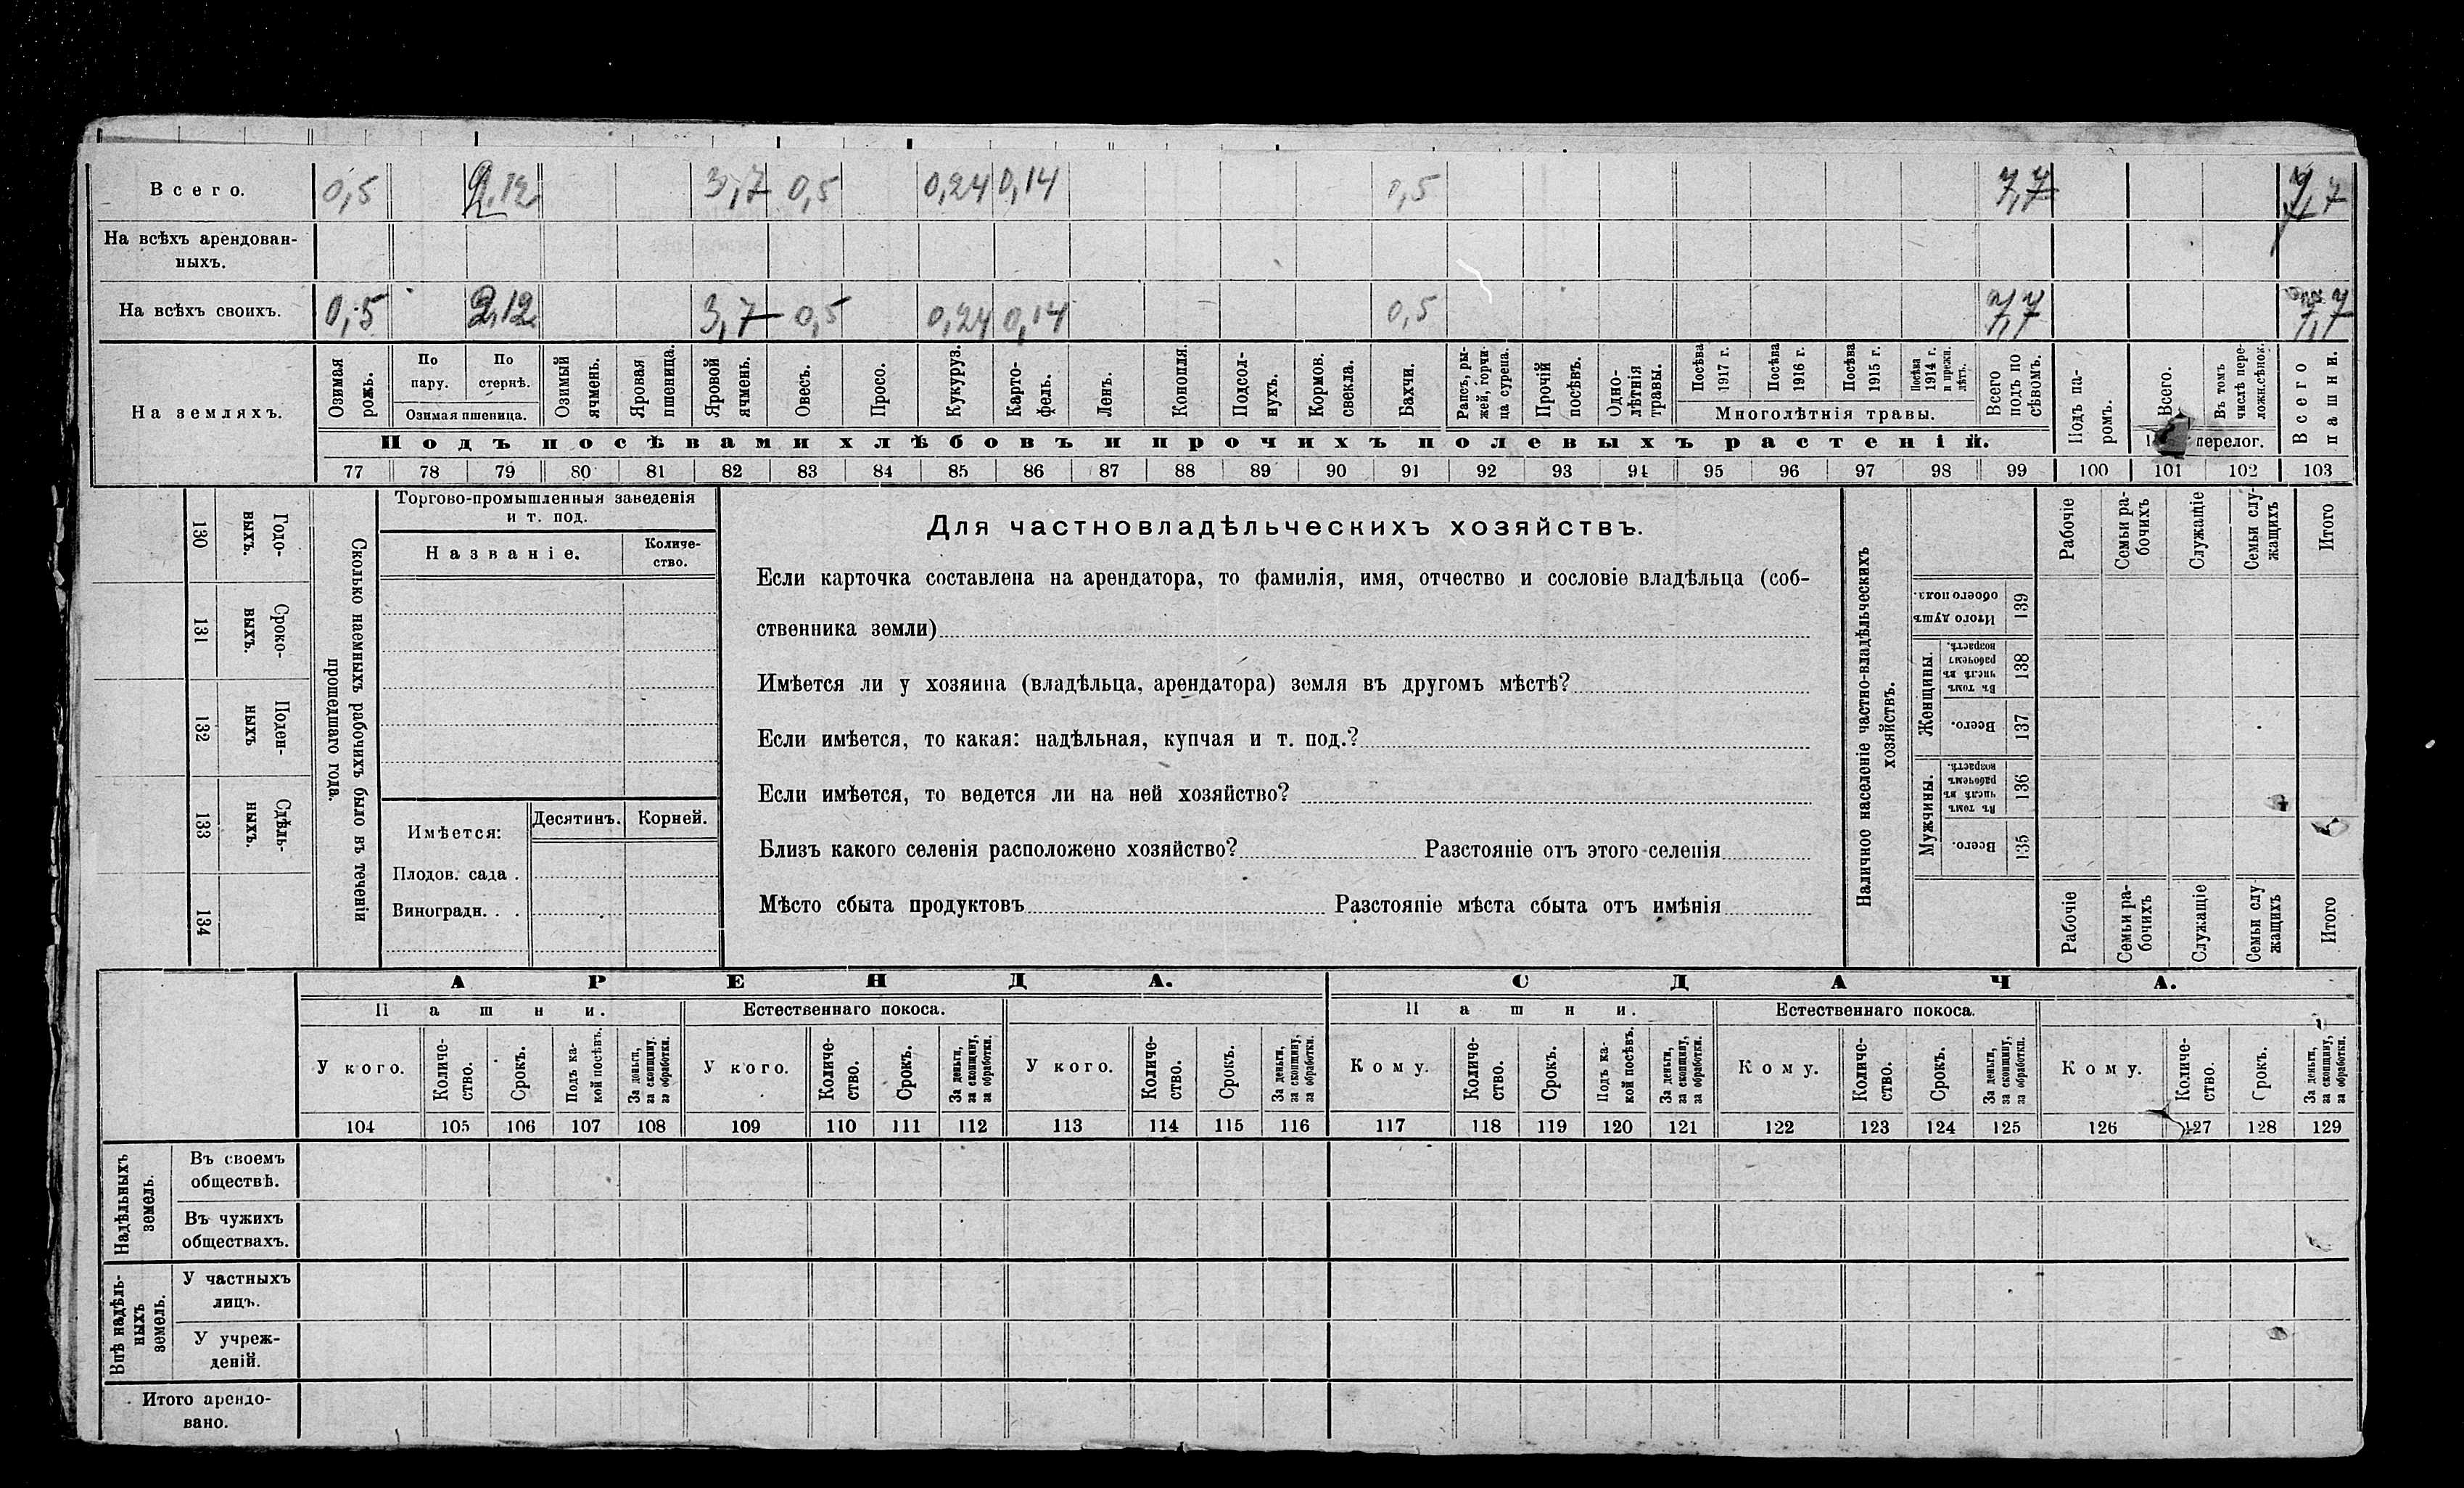 Всего. 0,5 2,12 3,7 0,5 0,24 0,14 0,5 7,7 7,7
На всѣхъ арендован-
ныхъ.
На всѣхъ своихъ. 0,5 2,12 3,7 0,5 0,24 0,14 0,5 7,7 7,7
На земляхъ.
Озимая рожь.
По пару.
По стернѣ.
Озимая пшеница.
Озимый ячмень.
Яровая пшеница.
Яровой ячмень.
Овесъ.
Просо.
Кукуруз.
Карто-
фель.
Ленъ.
Конопля.
Подсол-
нухъ.
Кормов.
свекла.
Бахчи.
Рапсъ, ры-
жей, горчи-
ца сурепа.
Прочій
посѣвъ.
Одно-
лѣтнія
травы.
Посѣва 1917 г.
Посѣва 1916 г.
Посѣва 1915 г.
Посѣва 1914 г. и прежн. лѣтъ.
Многолѣтнія травы.
Всего
подъ по
сѣвомъ.
Подъ па-
ромъ.
Всего.
Въ томъ
числѣ пере-
ложн.сѣнок.
перелог.
Всего
пашни.
Подъ посѣвами хлѣбовъ и прочихъ полевыхъ растеній.
77 78 79 80 81 82 83 84 85 86 87 88 89 90 91 92 93 94 95 96 97 98 99 100 101 102 103
130 Годо-
выхъ.
131 Сроко-
выхъ.
132 Поден-
ныхъ
133 Сдѣль-
ныхъ.
134
Сколько наемныхъ рабочихъ было въ теченіи
прошедшаго года.
Торгово-промышленныя заведенія
и т. под.
Названіе.
Количе-
ство.
Имѣется:
Десятинъ. Корней.
Плодов. сада .
Виноградн. . .
Для частновладѣльческихъ хозяйствъ.
Если карточка составлена на арендатора, то фамилія, имя, отчество и сословіе владѣльца (соб-
ственника земли)
Имѣется ли у хозяина (владѣльца, арендатора) земля въ другомъ мѣстѣ?
Если имѣется, то какая: надѣльная, купчая и т. под.?
Если имѣется, то ведется ли на ней хозяйство?
Близъ какого селенія расположено хозяйство? Разстояніе отъ этого селенія
Мѣсто сбыта продуктовъ Разстояніе мѣста сбыта отъ имѣнія
Наличное населеніе частно-владѣльческихъ
хозяйствъ.
Рабочіе
Семьи ра-
бочихъ
Служащіе
Семьи слу-
жащихъ
Итого
Итого душъ
обоего пола.
139
Женщины.
Въ томъ
числѣ въ
рабочемъ
возрастѣ.
138
Всего.
137
Мужчины.
Въ томъ
числѣ въ
рабочемъ
возрастѣ.
136
Всего.
135
Рабочіе
Семьи ра-
бочихъ
Служащіе
Семьи слу-
жащихъ
Итого
АРЕНДА. СДАЧА.
Пашни. Естественнаго покоса. Пашни. Естественнаго покоса.
У кого.
Количе-
ство.
Срокъ.
Подъ ка-
кой посѣвъ.
За деньги,
за скопщину.
за обработки.
У кого.
Количе-
ство.
Срокъ.
За деньги,
за скопщину,
за обработки.
У кого.
Количе-
ство.
Срокъ.
За деньги,
за скопщину,
за обработки.
Кому.
Количе-
ство.
Срокъ.
Подъ ка-
кой посѣвъ.
За деньги,
за скопщину,
за обработки.
Кому.
Количе-
ство.
Срокъ.
За деньги,
за скопщину,
за обработки.
Кому.
Количе-
ство.
Срокъ.
За деньги,
за скопщину,
за обработки.
104 105 106 107 108 109 110 111 112 113 114 115 116 117 118 119 120 121 122 123 124 125 126 127 128 129
Надѣльныхъ
земель.
Въ своемъ
обществѣ.
Въ чужихъ
обществахъ.
Внѣ надѣль-
ныхъ
земель.
У частныхъ
лицъ.
У учреж-
деній.
Итого арендо-
вано.